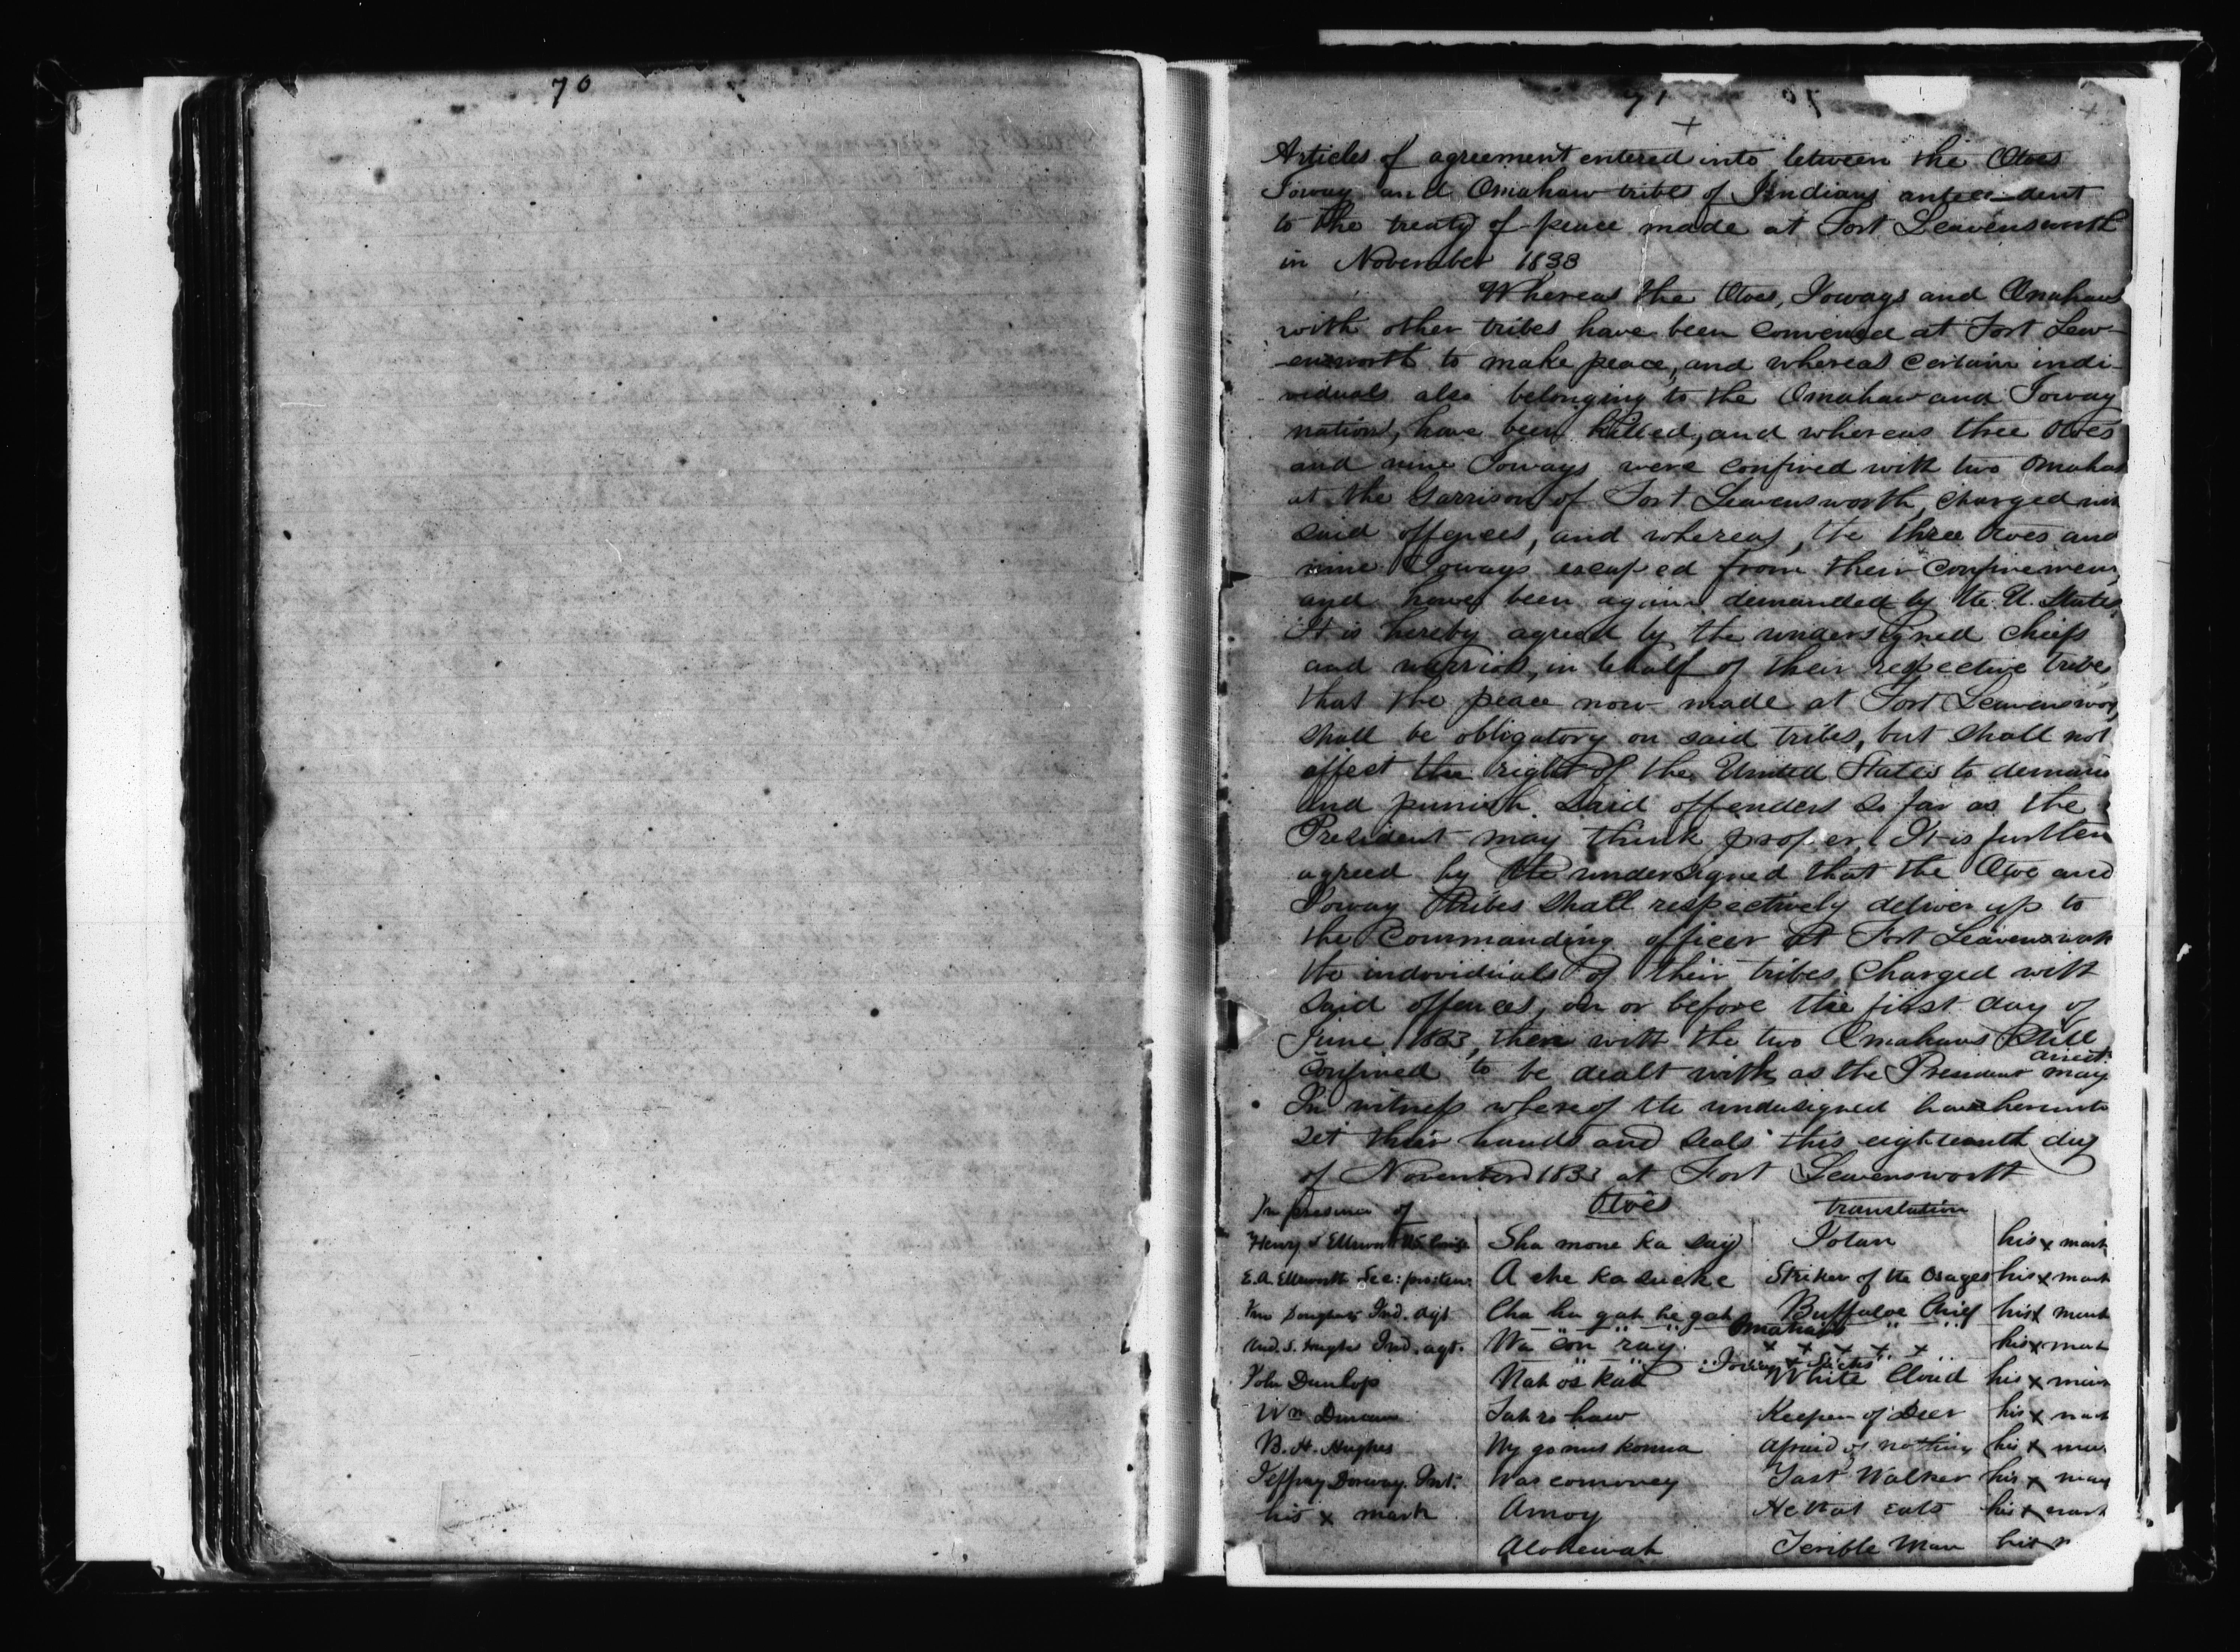 70
71
Articles of agreement entered into between the Otoes
Ioway and Omahaw tribes of Indians antece-dent
to the treaty of peace made at Fort Leavensworth
in November 1833
Whereas the Otoes, Ioways and Omahaws
with other tribes have been convened at Fort Leav-
-ensworth to make peace, and whereas certain indi-
viduals also belonging to the Omahaw and Ioway
nations, have been killed, and whereas three Otoes
and nine Ioways were confined with two Omahas
at the Garrison of Fort Leavensworth, charged with
said offences, and whereas, the three Otoes and
nine Ioways escaped from their confinement
and have been again demanded by the U. States,
It is hereby agreed by the undersigned chiefs
and warriors, in behalf of their respective tribes
that the peace now made at Fort Leavenswor
shall be obligatory on said tribes, but shall not
affect the right of the United States to demand
and punish said offenders so far as the
President may think proper, It is further
agreed by the undersigned that the Otoe and
Ioway tribes shall respectively deliver up to
the Commanding officer at Fort Leavensworth
the individuals of their tribes, charged with
said offences, on or before the first day of
June 1833, then with the two Omahaws still
confined to be dealt with as the President may direct
In witness whereof the undersigned have hereunto
set their hands and seals this eighteenth day
of November 1833 at Fort Leavensworth
In presence of Otoes translation
Henry L Ellsworth Sha mone ka say Iotan his x mark
E. A. Ellsworth Sec: pro. tem. A che ka sucke Striker of the Osages his x mark
Jno Dougherty Ind. Agt Cha hu gah he gah Buffaloe Chief his x mark
Omahaws
And. S. Hughes Ind. agt. Wa con ray x x x x x his x mark
Ioway & Sacks
John Dunlop Nah os kah White Cloud his x mark
Wm Duncan Tah ro haw Keeper of Deer his x mark
B. H. Hughes Ny go nus konna Afraid of nothing his x mar
Jeffrey Dorway Int. Wascomoney Fast Walker his x mark
his x mark Amoy He that eats his x mark
Alokewah Terible Man his x m